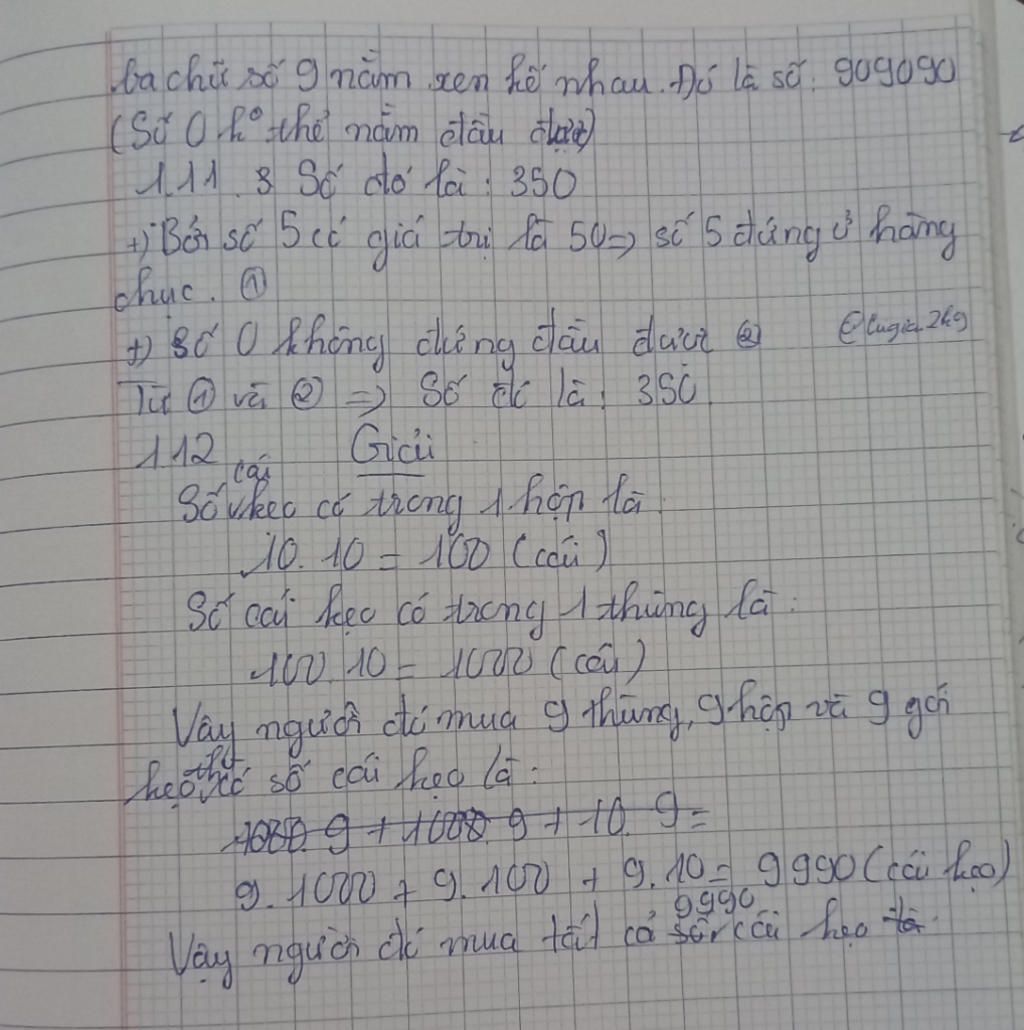 ba chữ số 9 nằm xen kẽ nhau. Đó là số: 909090
(Số 0 k° thể nằm đầu được)
1.11. 3 Số đó là: 350
+) Bởi số 5 có giá trị là 50 => số 5 đứng ở hàng
chục. ①
+) Số 0 không đứng đầu được ② @lugia.2kg
Từ ① và ② => Số đó là: 350.
1.12 Giải
Số cái kẹo có trong 1 hộp là:
10. 10 = 100 (cái)
Số cái kẹo có trong 1 thùng là:
100. 10 = 1000 (cái)
Vậy người đó mua 9 thùng, 9 hộp và 9 gói
kẹo thì có số cái kẹo là:
1000. 9 + 1000. 9 + 10. 9 =
9. 1000 + 9. 100 + 9. 10 = 9990 (cái kẹo)
Vậy người đó mua tất cả số 9990 cái kẹo là.